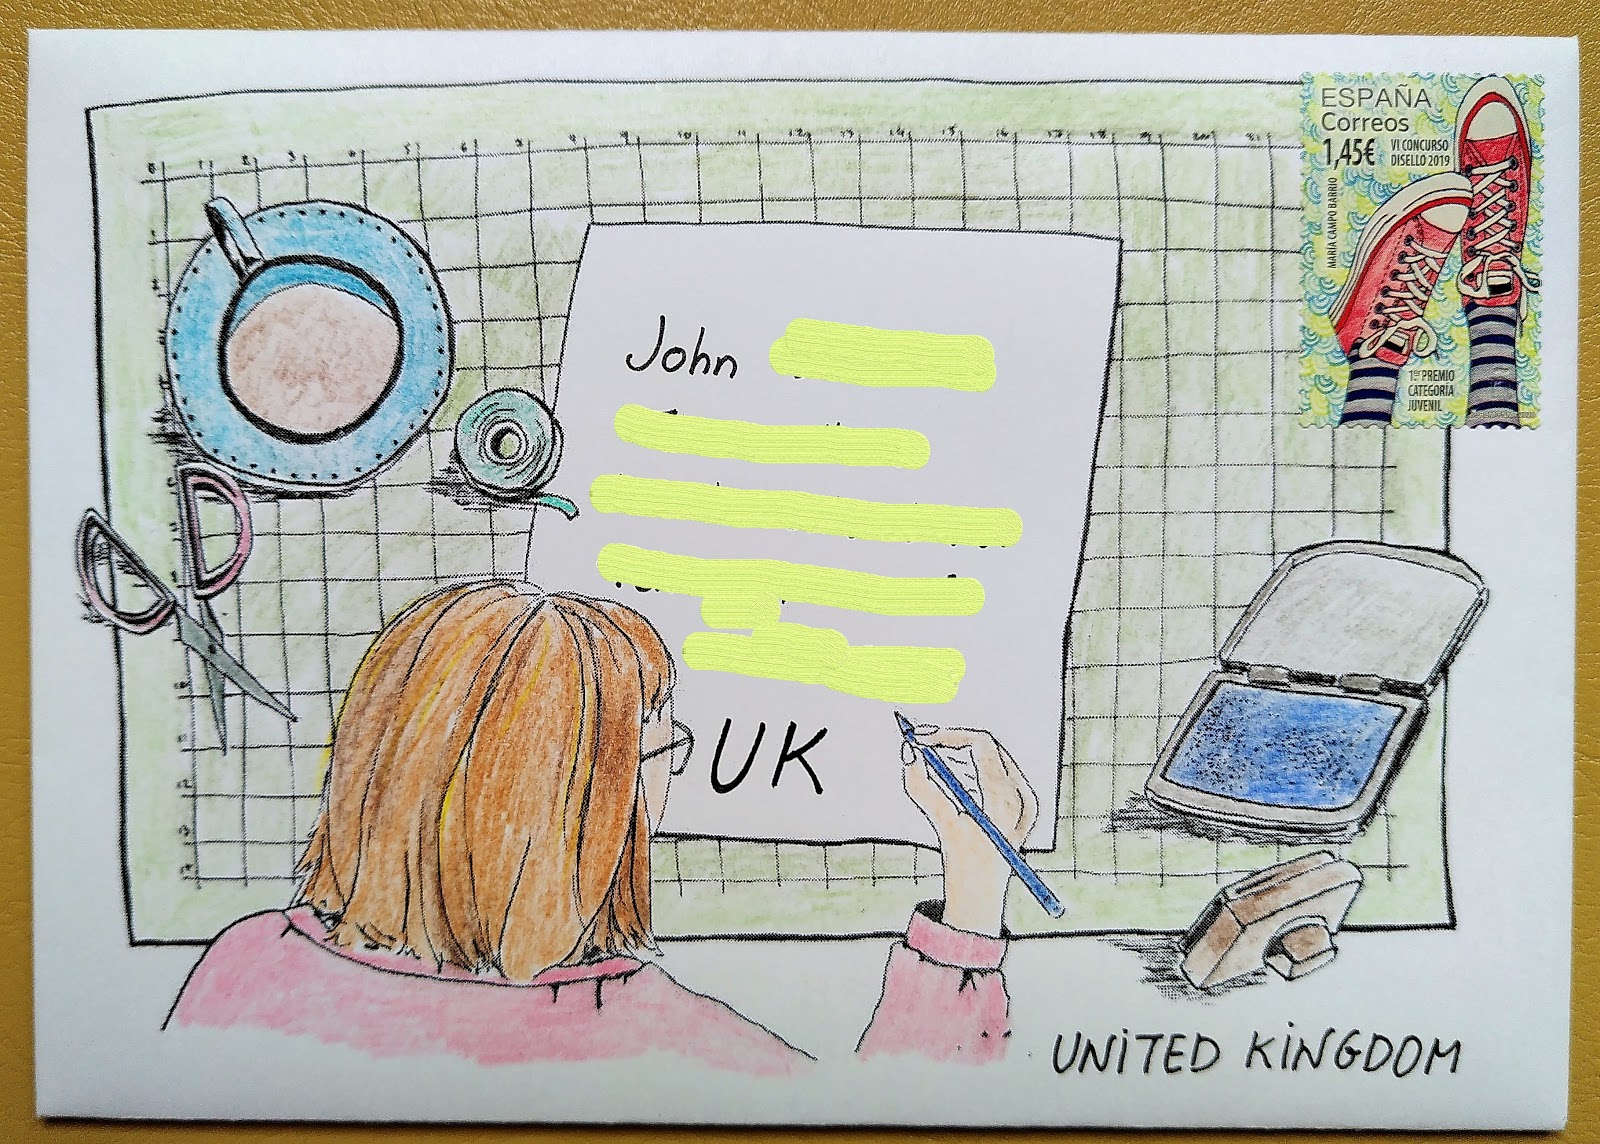 ESPAÑA
Correos
1,45€
VI CONCURSO
DISELLO 2019
MARÍA CAMPO BARRIO
1er PREMIO
CATEGORÍA
JUVENIL
John
UK
UNITED KINGDOM